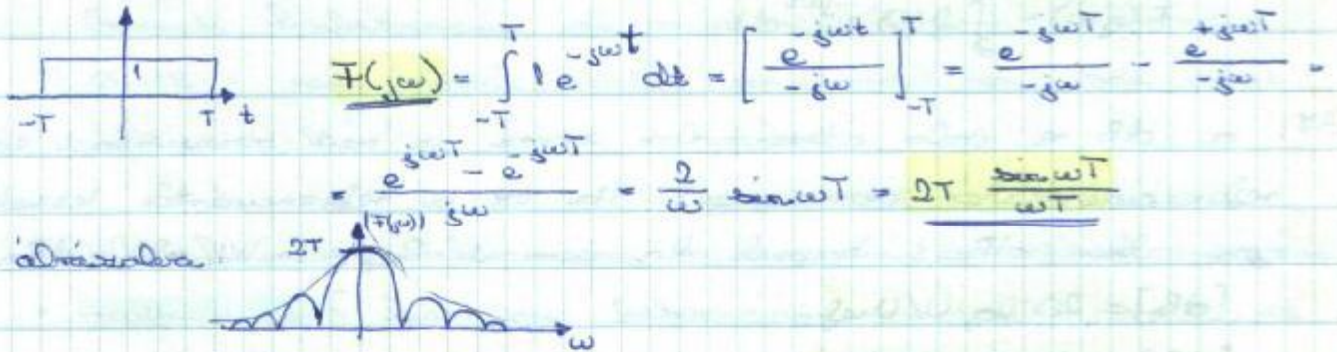 F(jω) = ∫_{-T}^{T} 1 e^{-jωt} dt = [ e^{-jωt} / -jω ]_{-T}^{T} = e^{-jωT} / -jω - e^{+jωT} / -jω =
1
-T T t
= (e^{jωT} - e^{-jωT}) / jω = 2/ω sin ωT = 2T sin ωT / ωT
ábrázolva: 2T |F(jω)|
ω